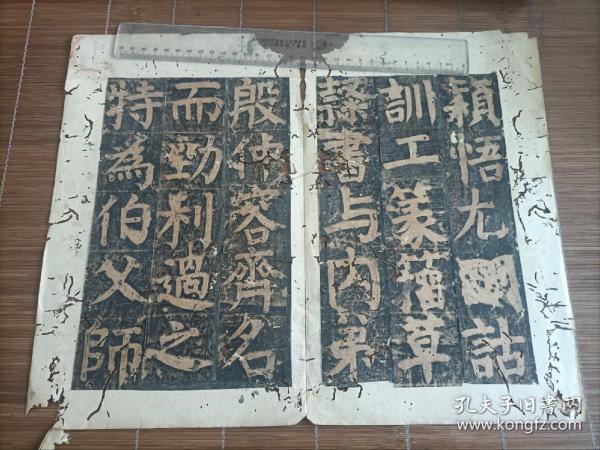 穎悟尤明詁
訓工篆籀草
隸書与内弟
殷仲容齊名
而勁利過之
特為伯父師
孔夫子旧书网
www.kongfz.com